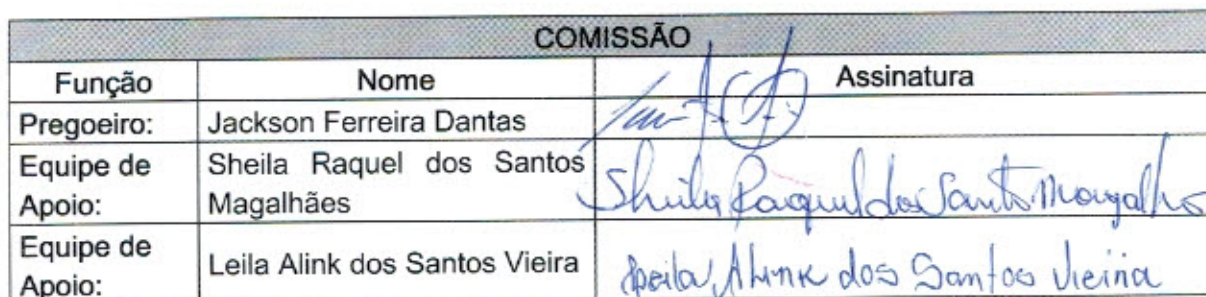 COMISSÃO
Função Nome Assinatura
Pregoeiro: Jackson Ferreira Dantas
Equipe de Apoio: Sheila Raquel dos Santos Magalhães Sheila Raquel dos Santos Magalhães
Equipe de Apoio: Leila Alink dos Santos Vieira Leila Alink dos Santos Vieira